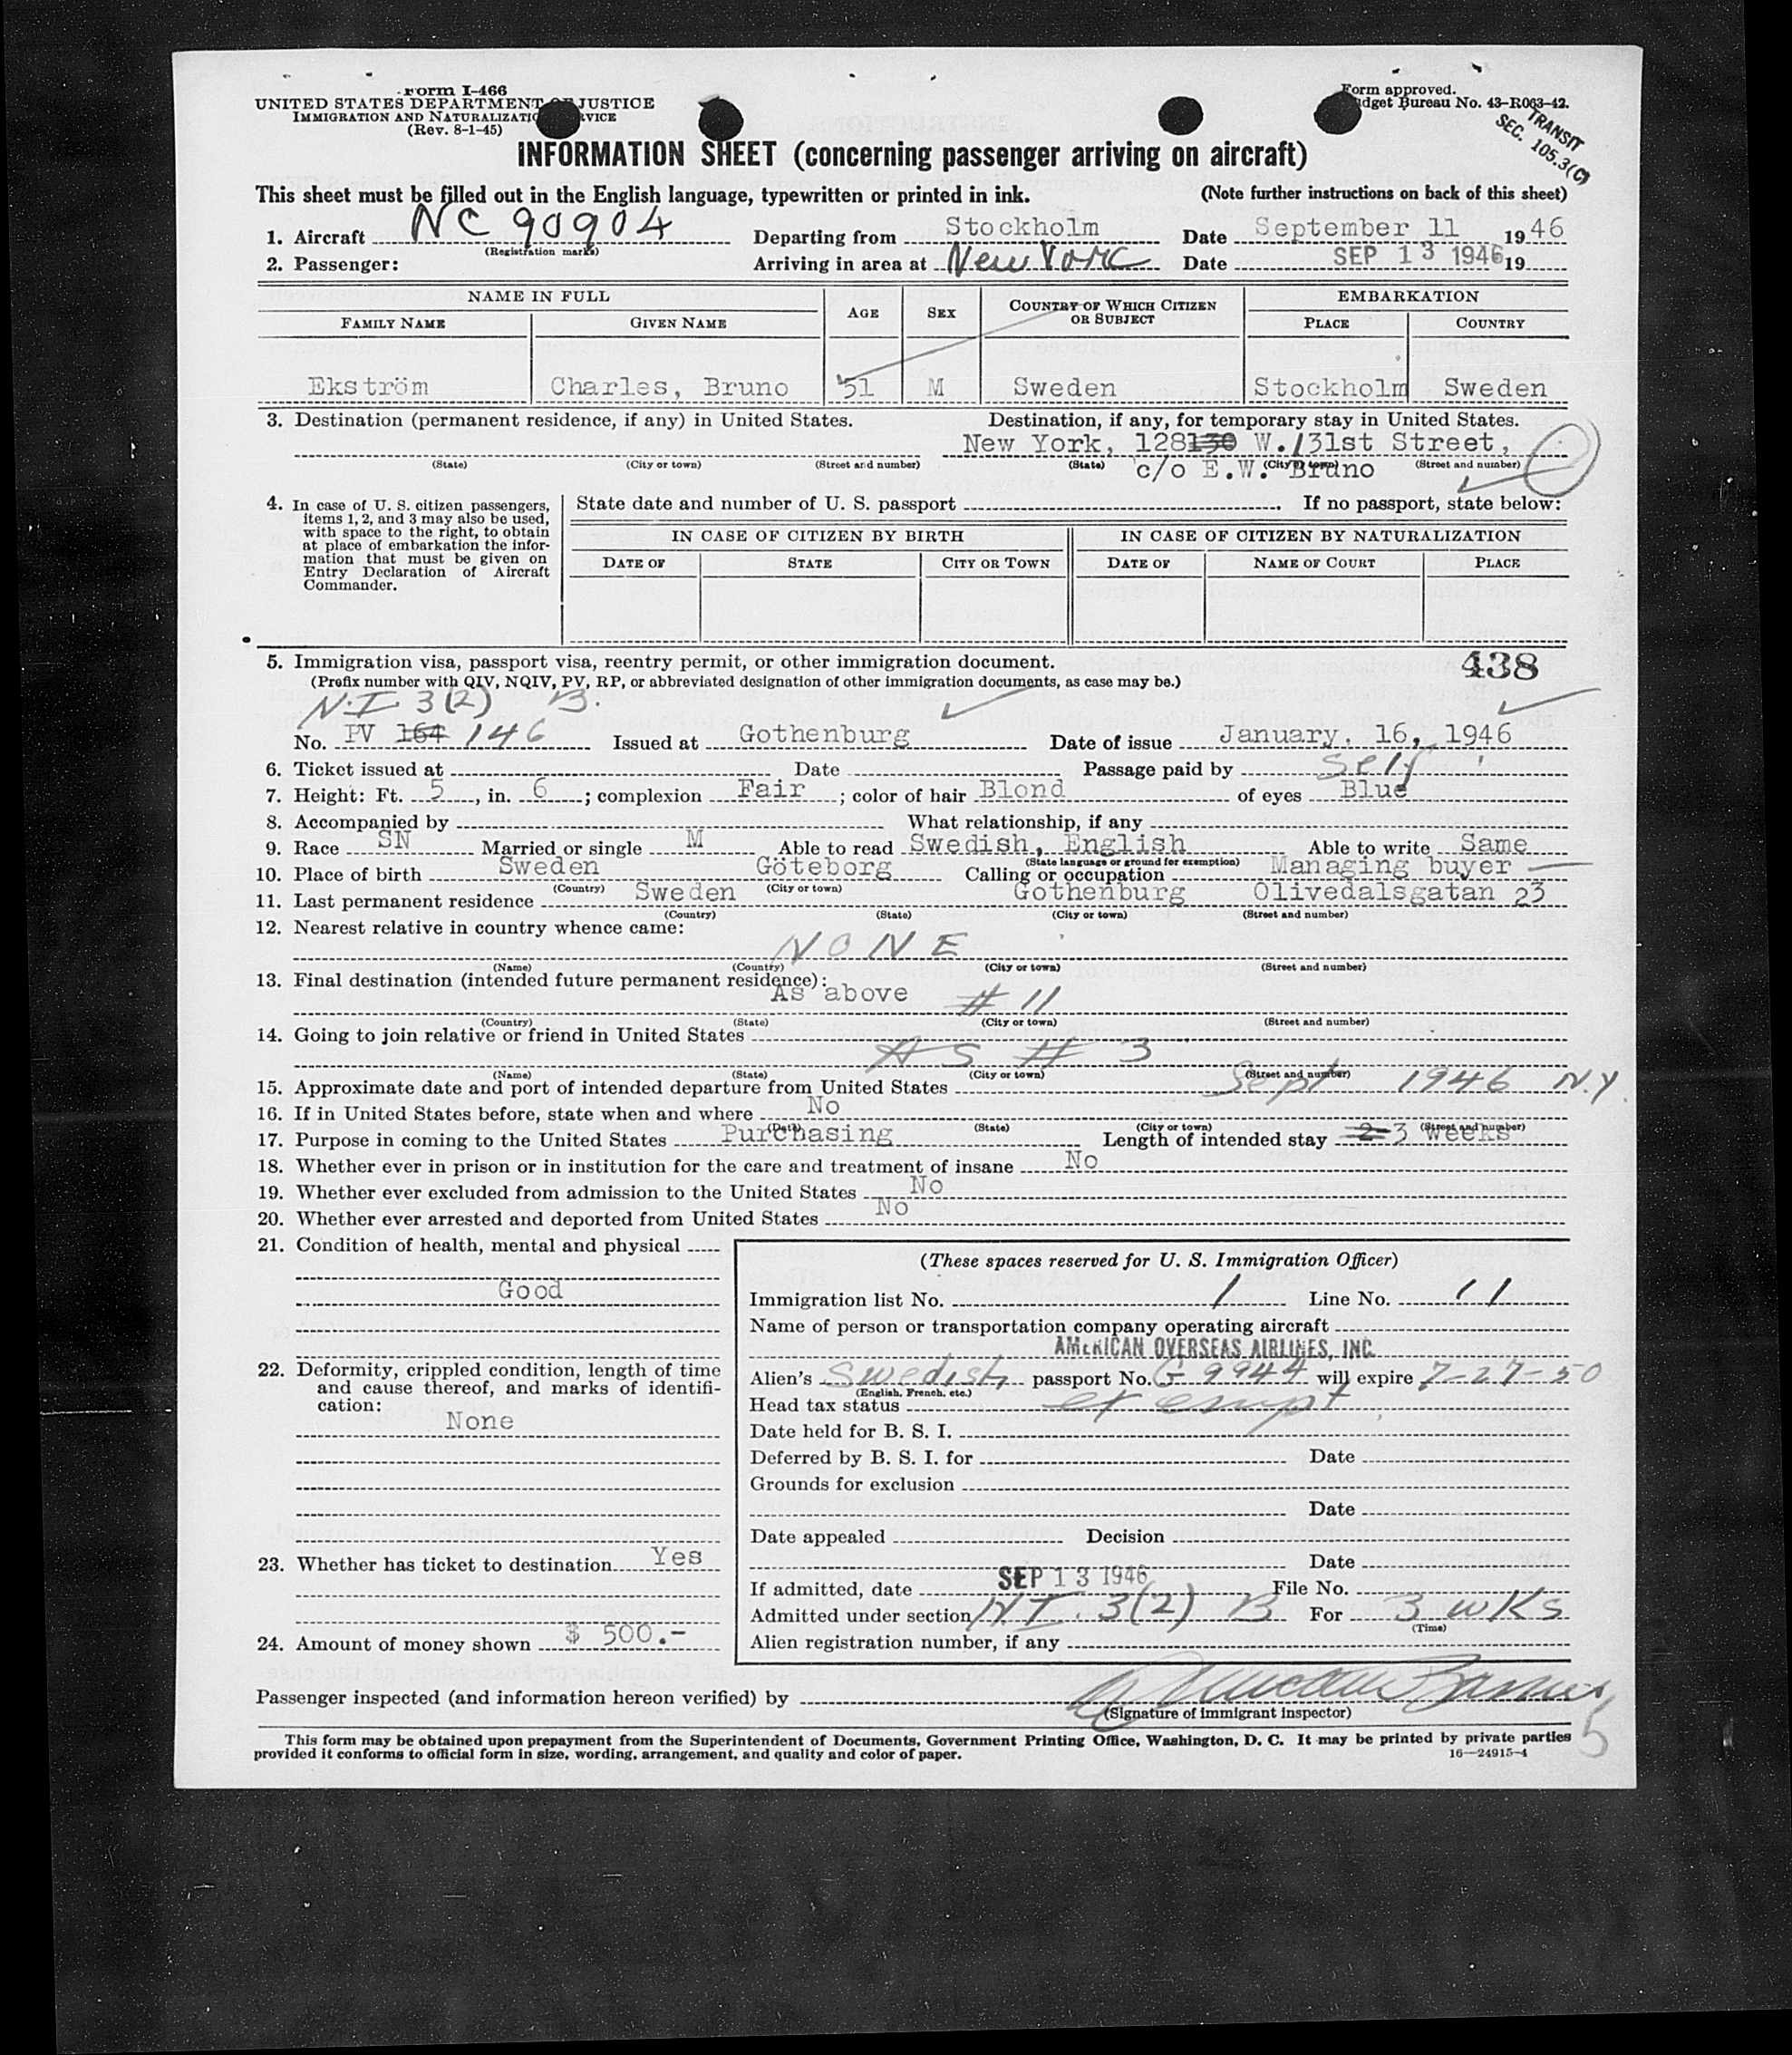 Form I-466
UNITED STATES DEPARTMENT OF JUSTICE
IMMIGRATION AND NATURALIZATION SERVICE
(Rev. 8-1-45)
Form approved.
Budget Bureau No. 43-R063-42.
TRANSIT
SEC. 105.3(C)
INFORMATION SHEET (concerning passenger arriving on aircraft)
This sheet must be filled out in the English language, typewritten or printed in ink. (Note further instructions on back of this sheet)
1. Aircraft NC 90904 Departing from Stockholm Date September 11 1946
(Registration marks)
2. Passenger: Arriving in area at New York Date SEP 13 1946 19
NAME IN FULL AGE SEX COUNTRY OF WHICH CITIZEN OR SUBJECT EMBARKATION
FAMILY NAME GIVEN NAME PLACE COUNTRY
Ekström Charles, Bruno 51 M Sweden Stockholm Sweden
3. Destination (permanent residence, if any) in United States. Destination, if any, for temporary stay in United States.
New York, 128 130 W. 31st Street,
(State) (City or town) (Street and number) (State) (City or town) (Street and number)
c/o E.W. Bruno
4. In case of U. S. citizen passengers, items 1, 2, and 3 may also be used, with space to the right, to obtain at place of embarkation the information that must be given on Entry Declaration of Aircraft Commander.
State date and number of U. S. passport . If no passport, state below:
IN CASE OF CITIZEN BY BIRTH IN CASE OF CITIZEN BY NATURALIZATION
DATE OF STATE CITY OR TOWN DATE OF NAME OF COURT PLACE
5. Immigration visa, passport visa, reentry permit, or other immigration document. 438
(Prefix number with QIV, NQIV, PV, RP, or abbreviated designation of other immigration documents, as case may be.)
N.I 3(2) B.
No. PV 164 146 Issued at Gothenburg Date of issue January. 16, 1946
6. Ticket issued at Date Passage paid by Self
7. Height: Ft. 5, in. 6; complexion Fair; color of hair Blond of eyes Blue
8. Accompanied by What relationship, if any
9. Race SN Married or single M Able to read Swedish, English Able to write Same
(State language or ground for exemption)
10. Place of birth Sweden Göteborg Calling or occupation Managing buyer
(Country) (City or town)
11. Last permanent residence Sweden Gothenburg Olivedalsgatan 23
(Country) (State) (City or town) (Street and number)
12. Nearest relative in country whence came:
NONE
(Name) (Country) (City or town) (Street and number)
13. Final destination (intended future permanent residence):
As above # 11
(Country) (State) (City or town) (Street and number)
14. Going to join relative or friend in United States
AS # 3
(Name) (State) (City or town) (Street and number)
15. Approximate date and port of intended departure from United States Sept 1946 N.Y.
16. If in United States before, state when and where No
(Date) (State) (City or town) (Street and number)
17. Purpose in coming to the United States Purchasing Length of intended stay 2 3 weeks
18. Whether ever in prison or in institution for the care and treatment of insane No
19. Whether ever excluded from admission to the United States No
20. Whether ever arrested and deported from United States No
21. Condition of health, mental and physical
Good
22. Deformity, crippled condition, length of time and cause thereof, and marks of identification:
None
23. Whether has ticket to destination Yes
24. Amount of money shown $ 500.-
(These spaces reserved for U. S. Immigration Officer)
Immigration list No. 1 Line No. 11
Name of person or transportation company operating aircraft
AMERICAN OVERSEAS AIRLINES, INC
Alien's Swedish passport No. G 9944 will expire 7-27-50
(English, French, etc.)
Head tax status exempt
Date held for B. S. I.
Deferred by B. S. I. for Date
Grounds for exclusion
Date
Date appealed Decision
Date
If admitted, date SEP 13 1946 File No.
Admitted under section N.I. 3(2) B For 3 wks
(Time)
Alien registration number, if any
Passenger inspected (and information hereon verified) by
(Signature of immigrant inspector)
5
This form may be obtained upon prepayment from the Superintendent of Documents, Government Printing Office, Washington, D. C. It may be printed by private parties
provided it conforms to official form in size, wording, arrangement, and quality and color of paper. 16—24915-4